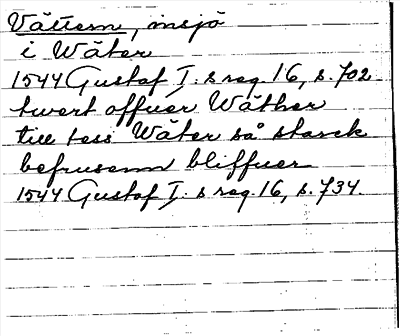 Vättern, insjö
i Wäter
1544 Gustaf I:s reg. 16, s. 702
twert offuer Wäther
till tess Wäter så starck
befrusenn bliffuer
1544 Gustaf I:s reg. 16, s. 734